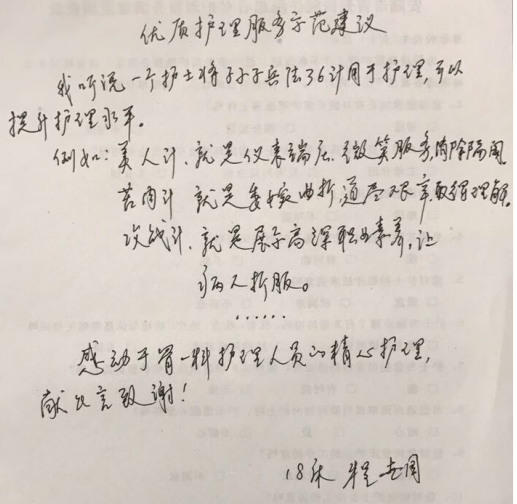 优质护理服务示范建议
我听说一个护士将孙子兵法36计用于护理,可以
提升护理水平。
例如:美人计、就是仪表端庄、微笑服务,消除隔阂
苦肉计、就是委婉曲折,道尽艰辛取得理解。
攻战计、就是展示高深职业素养,让
病人折服。
……
感动于胃一科护理人员的精心护理,
献此言致谢!
18床